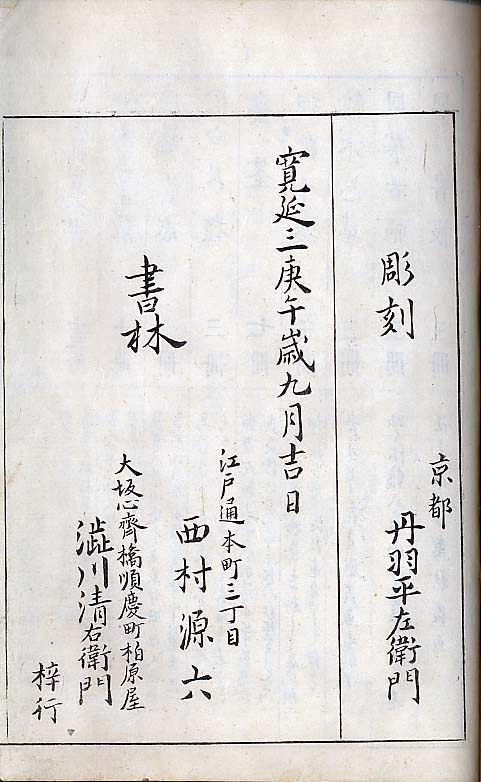 彫刻
京都
丹羽平左衛門
寛延三庚午歳九月吉日
書林
江戸通本町三丁目
西村源六
大坂心齊橋順慶町柏原屋
澁川清右衛門
梓行